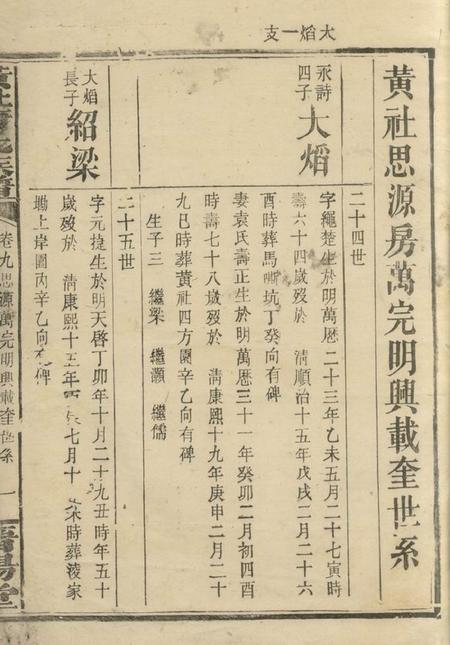 大熖一支
黃社思源房萬完明興載奎世系
二十四世
永詩四子
大熖
字繩楚生於明萬厯二十三年乙未五月二十七寅時
壽六十四歲歿於 清順治十五年戊戌二月二十六
酉時葬馬嘶坑丁癸向有碑
妻袁氏壽正生於明萬厯三十一年癸卯二月初四酉
時壽七十八歲歿於 清康熙十九年庚申二月二十
九巳時葬黃社四方園辛乙向有碑
生子三 繼梁 繼灝 繼儒
二十五世
大熖長子
紹梁
字元捷生於明天啓丁卯年十月二十九丑時年五十
歲歿於 清康熙十五年丙辰七月十 未時葬淩家
塲上岸園丙辛乙向有碑
卷九思源萬完明興載奎世系 一